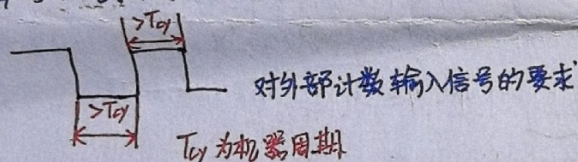 >Tcy
>Tcy
对外部计数输入信号的要求
Tcy 为机器周期